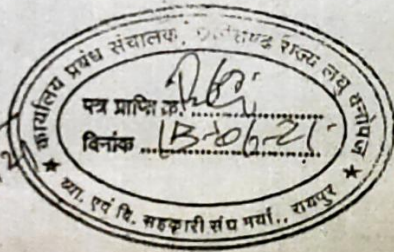 कार्यालय प्रबंध संचालक, छत्तीसगढ़ राज्य लघु वनोपज
पत्र प्राप्ति क्र.
दिनांक 13-06-21
★ व्या. एवं वि. सहकारी संघ मर्या., रायपुर ★